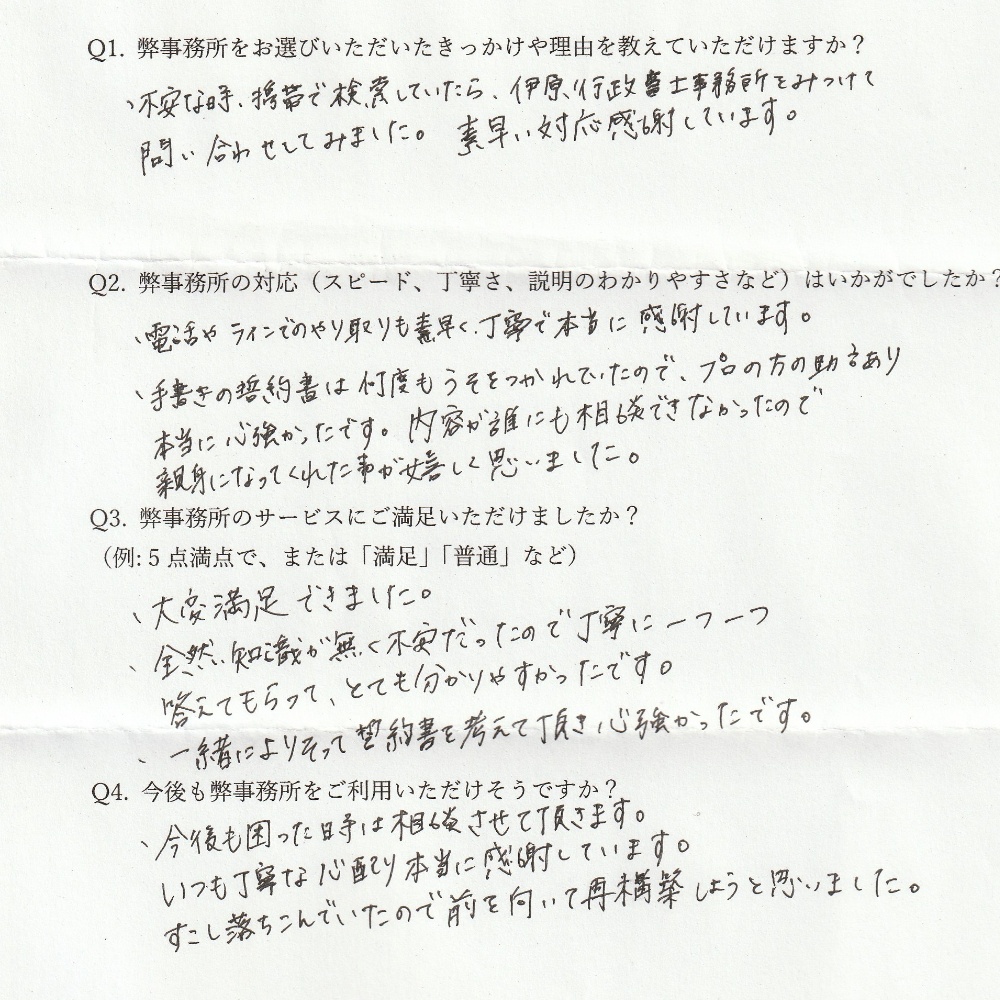 Q1. 弊事務所をお選びいただいたきっかけや理由を教えていただけますか？
、不安な時、携帯で検索していたら、伊原行政書士事務所をみつけて
問い合わせしてみました。 素早い対応感謝しています。
Q2. 弊事務所の対応（スピード、丁寧さ、説明のわかりやすさなど）はいかがでしたか？
、電話やラインでのやり取りも素早く、丁寧で本当に感謝しています。
、手書きの誓約書は何度もうそをつかれていたので、プロの方の助言あり
本当に心強かったです。内容が誰にも相談できなかったので
親身になってくれた事が嬉しく思いました。
Q3. 弊事務所のサービスにご満足いただけましたか？
（例: 5 点満点で、または「満足」「普通」など）
、大変満足できました。
、全然、知識が無く不安だったので丁寧に一つ一つ
答えてもらって、とても分かりやすかったです。
、一緒によりそって誓約書を考えて頂き心強かったです。
Q4. 今後も弊事務所をご利用いただけそうですか？
、今後も困った時は相談させて頂きます。
いつも丁寧な心配り本当に感謝しています。
すこし落ちこんでいたので前を向いて再構築しようと思いました。